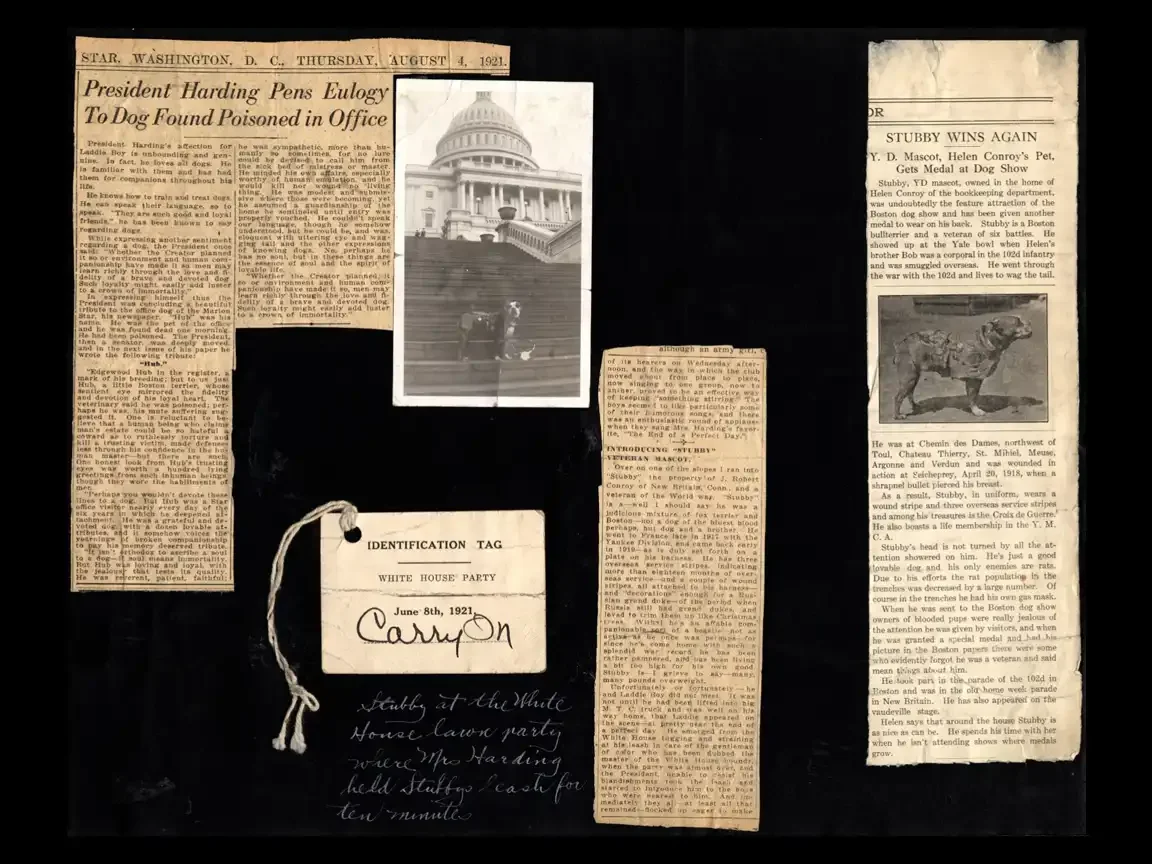 STAR, WASHINGTON, D. C., THURSDAY, AUGUST 4, 1921.
President Harding Pens Eulogy
To Dog Found Poisoned in Office
President Harding's affection for
Laddie Boy is unbounded and gen-
uine. In fact, he loves all dogs. He
is familiar with them and has had
them for companions throughout his
life.
He knows how to train and treat dogs.
He can speak their language, so to
speak. "They are such good and loyal
friends," he has been known to say
regarding dogs.
While expressing another sentiment
regarding a dog, the President once
said: "Whether the Creator planned
it so or environment and human com-
panionship have made it so men may
learn richly through the love and fi-
delity of a brave and devoted dog.
Such loyalty might easily add luster
to a crown of immortality."
In expressing himself thus the
President was concluding a beautiful
tribute to the office dog of the Marion
Star, his newspaper. "Hub" was his
name. He was the pet of the office
and he was found dead one morning.
He had been poisoned. The President,
then a senator, was deeply moved,
and in the next issue of his paper he
wrote the following tribute:
"Hub."
"Edgewood Hub in the register, a
mark of his breeding; but to us just
Hub, a little Boston terrier, whose
sentient eye mirrored the fidelity
and devotion of his loyal heart. The
veterinary said he was poisoned; per-
haps he was, his mute suffering sug-
gested it. One is reluctant to be-
lieve that a human being who claims
man's estate could be so hateful a
coward as to ruthlessly torture and
kill a trusting victim, made defense-
less through his confidence in the hu-
man master—but there are such.
One honest look from Hub's trusting
eyes was worth a hundred lying
greetings from such inhuman beings,
though they wore the habiliments of
men.
"Perhaps you wouldn't devote these
lines to a dog. But Hub was a Star
office visitor nearly every day of the
six years in which he deepened at-
tachment. He was a grateful and de-
voted dog, with a dozen lovable at-
tributes, and it somehow voices the
yearnings of broken companionship
to pay his memory deserved tribute.
"It isn't orthodox to ascribe a soul
to a dog—if soul means immortality.
But Hub was loving and loyal, with
the jealousy that tests its quality.
He was reverent, patient, faithful;
he was sympathetic, more than hu-
manly so sometimes, for no lure
could be devised to call him from
the sick bed of mistress or master.
He minded his own affairs, especially
worthy of human emulation, and he
would kill nor wound no living
thing. He was modest and submis-
sive where those were becoming, yet
he assumed a guardianship of the
home he sentineled until entry was
properly vouched. He couldn't speak
our language, though he somehow
understood, but he could be, and was,
eloquent with uttering eye and wag-
ging tail and the other expressions
of knowing dogs. No, perhaps he
has no soul, but in these things are
the essence of soul and the spirit of
lovable life.
"Whether the Creator planned it
so or environment and human com-
panionship have made it so, men may
learn richly through the love and fi-
delity of a brave and devoted dog.
Such loyalty might easily add luster
to a crown of immortality."
IDENTIFICATION TAG
WHITE HOUSE PARTY
June 8th, 1921.
Carry On
Stubby at the White
House lawn party
where Mrs Harding
held Stubbys leash for
ten minutes
although an army girl,
of its hearers on Wednesday after-
noon, and the way in which the club
moved about from place to place,
now singing to one group, now to
another, proved to be an effective way
of keeping "something stirring." The
boys seemed to like particularly some
of their humorous songs, and there
was an enthusiastic round of applause
when they sang Mrs. Harding's favor-
ite, "The End of a Perfect Day."
INTRODUCING "STUBBY"
VETERAN MASCOT.
Over on one of the slopes I ran into
"Stubby" the property of J. Robert
Conroy of New Britain, Conn., and a
veteran of the World war. "Stubby"
is a—well I should say he was a
judicious mixture of fox terrier and
Boston—not a dog of the bluest blood
perhaps, but dog and a brother. He
went to France late in 1917 with the
Yankee Division, and came back early
in 1919—as is duly set forth on a
plate on his harness. He has three
overseas service stripes, indicating
more than eighteen months of over-
seas service—and a couple of wound
stripes, all attached to his harness—
and "decorations" enough for a Rus-
sian grand duke—of the period when
Russia still had grand dukes, and
loved to trim them up like Christmas
trees. Withal he is an affable com-
panionable sort of a beastie—not as
active as he once was perhaps—for
since he's come home with such a
splendid war record, he has been
rather pampered, and has been living
a bit too high for his own good.
Stubby is—I grieve to say—many,
many pounds overweight.
Unfortunately or fortunately—he
and Laddie Boy did not meet. It was
not until he had been lifted into big
M. T. C. truck and was well on his
way home, that Laddie appeared on
the scene—at pretty near the end of
a perfect day. He emerged from the
White House tugging and straining
at his leash in care of the gentleman
of color who has been dubbed the
master of the White House hounds,
when the party was almost over, and
the President, unable to resist his
blandishments took the leash and
started to introduce him to the boys
who were nearest to him. And im-
mediately they all—at least all that
remained—flocked up eager to make
OR
STUBBY WINS AGAIN
Y. D. Mascot, Helen Conroy's Pet,
Gets Medal at Dog Show
Stubby, YD mascot, owned in the home of
Helen Conroy of the bookkeeping department,
was undoubtedly the feature attraction of the
Boston dog show and has been given another
medal to wear on his back. Stubby is a Boston
bullterrier and a veteran of six battles. He
showed up at the Yale bowl when Helen's
brother Bob was a corporal in the 102d infantry
and was smuggled overseas. He went through
the war with the 102d and lives to wag the tail.
He was at Chemin des Dames, northwest of
Toul, Chateau Thierry, St. Mihiel, Meuse,
Argonne and Verdun and was wounded in
action at Seicheprey, April 20, 1918, when a
shrapnel bullet pierced his breast.
As a result, Stubby, in uniform, wears a
wound stripe and three overseas service stripes
and among his treasures is the Croix de Guerre.
He also boasts a life membership in the Y. M.
C. A.
Stubby's head is not turned by all the at-
tention showered on him. He's just a good
lovable dog and his only enemies are rats.
Due to his efforts the rat population in the
trenches was decreased by a large number. Of
course in the trenches he had his own gas mask.
When he was sent to the Boston dog show
owners of blooded pups were really jealous of
the attention he was given by visitors, and when
he was granted a special medal and had his
picture in the Boston papers there were some
who evidently forgot he was a veteran and said
mean things about him.
He took part in the parade of the 102d in
Boston and was in the old home week parade
in New Britain. He has also appeared on the
vaudeville stage.
Helen says that around the house Stubby is
as nice as can be. He spends his time with her
when he isn't attending shows where medals
grow.